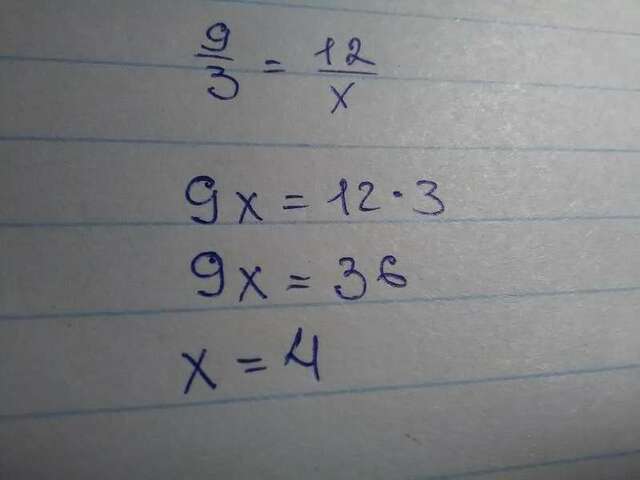 9/3 = 12/x
9x = 12·3
9x = 36
x = 4